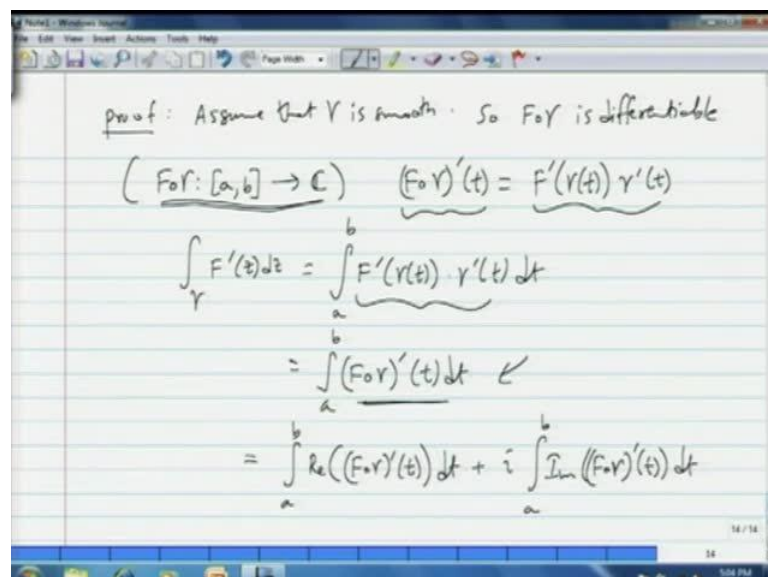 Note1 - Windows Journal
File Edit View Insert Actions Tools Help
Page Width
proof : Assume that γ is smooth. So Foγ is differentiable
( Foγ: [a,b] → ℂ ) (Foγ)'(t) = F'(γ(t)) γ'(t)
∫_γ F'(z)dz = ∫_a^b F'(γ(t)) · γ'(t) dt
= ∫_a^b (Foγ)'(t) dt
= ∫_a^b Re((Foγ)'(t)) dt + i ∫_a^b Im((Foγ)'(t)) dt
14 / 14
14
5:04 PM